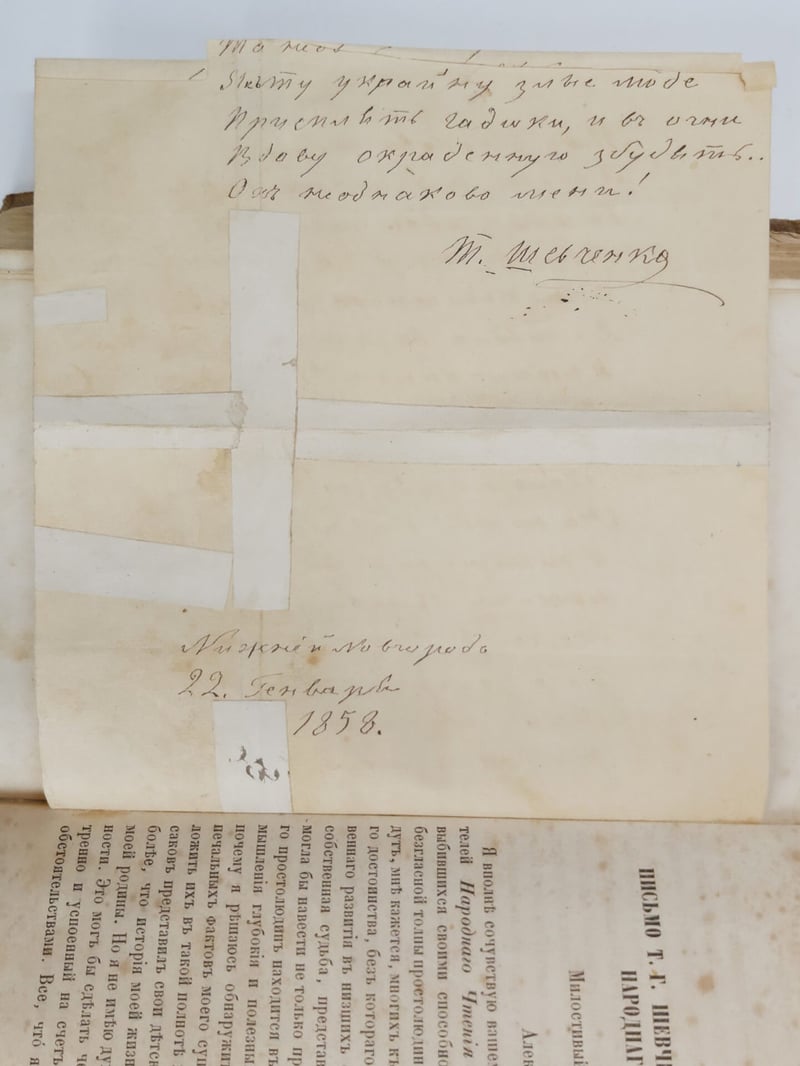 Та неод
украйну злые люде
Присплять гадюки, и въ огни
Вдову окраденную збудять..
Охъ неоднаково мени!
Т. Шевченко
Нижній Новгородъ
22. Генваря
1858.
ПИСЬМО Т. Г. ШЕВЧЕ
НАРОДНАГ
Милостивый
Алек
Я вполнѣ сочувствую вашем
телей Народнаго Чтенія
выбившихся своими способно
безгласной толпы простолюдин
дутъ, мнѣ кажется, многихъ къ
го достоинства, безъ котораго
веннаго развитія въ низшихъ
собственная судьба, представ
могла бы навести не только пр
го простолюдинъ находится въ
мышленія глубокія и полезны
почему я рѣшаюсь обнаружит
печальныхъ фактовъ моего сущ
ложить ихъ въ такой полнотѣ
саковъ представилъ свои дѣтск
болѣе, что исторія моей жизн
моей родины. Но я не имѣю ду
ности. Это могъ бы сдѣлать че
тренно и успоенный на счетъ
обстоятельствами. Все, что́ я